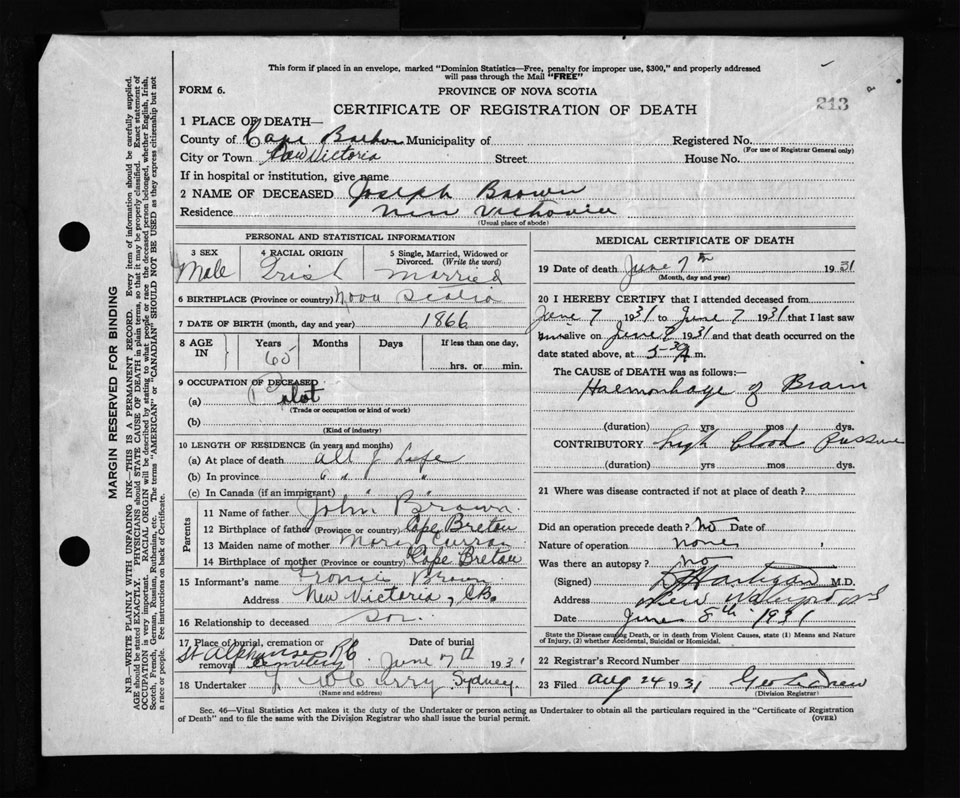 This form if placed in an envelope, marked "Dominion Statistics—Free, penalty for improper use, $300," and properly addressed
will pass through the Mail "FREE"
FORM 6.
PROVINCE OF NOVA SCOTIA
213
CERTIFICATE OF REGISTRATION OF DEATH
1 PLACE OF DEATH—
County of Cape Breton Municipality of Registered No.
(For use of Registrar General only)
City or Town New Victoria Street House No.
If in hospital or institution, give name
2 NAME OF DECEASED Joseph Brown
Residence New Victoria
(Usual place of abode)
PERSONAL AND STATISTICAL INFORMATION
3 SEX 4 RACIAL ORIGIN 5 Single, Married, Widowed or Divorced. (Write the word)
Male Irish Married
6 BIRTHPLACE (Province or country) Nova Scotia
7 DATE OF BIRTH (month, day and year) 1866
8 AGE IN Years Months Days If less than one day,
65 hrs. or min.
9 OCCUPATION OF DECEASED
(a) Pilot
(Trade or occupation or kind of work)
(b)
(Kind of industry)
10 LENGTH OF RESIDENCE (in years and months)
(a) At place of death all of Life
(b) In province " " "
(c) In Canada (if an immigrant) " "
Parents
11 Name of father John Brown
12 Birthplace of father (Province or country) Cape Breton
13 Maiden name of mother Mary Curran
14 Birthplace of mother (Province or country) Cape Breton
15 Informant's name Brown
Address New Victoria, C.B.
16 Relationship to deceased Son
17 Place of burial, cremation or removal St Alphonses RC Cemetery Date of burial June 7th 1931
18 Undertaker Curry Sydney
(Name and address)
MEDICAL CERTIFICATE OF DEATH
19 Date of death June 7th 1931
(Month, day and year)
20 I HEREBY CERTIFY that I attended deceased from
June 7 1931 to June 7 1931 that I last saw
him alive on June 7 1931 and that death occurred on the
date stated above, at 5-30 A m.
The CAUSE OF DEATH was as follows:—
Haemorrhage of Brain
(duration) yrs mos dys.
CONTRIBUTORY high blood pressure
(duration) yrs mos dys.
21 Where was disease contracted if not at place of death?
Did an operation precede death? No Date of
Nature of operation none
Was there an autopsy? No
(Signed) Hartigan M.D.
Address New Waterford
Date June 8th 1931
State the Disease causing Death, or in death from Violent Causes, state (1) Means and Nature
of Injury, (2) whether Accidental, Suicidal or Homicidal.
22 Registrar's Record Number
23 Filed Aug 24 1931 Geo
(Division Registrar)
Sec. 46—Vital Statistics Act makes it the duty of the Undertaker or person acting as Undertaker to obtain all the particulars required in the "Certificate of Registration
of Death" and to file the same with the Division Registrar who shall issue the burial permit.
(OVER)
MARGIN RESERVED FOR BINDING
N.B.—WRITE PLAINLY WITH UNFADING INK—THIS IS A PERMANENT RECORD. Every item of information should be carefully supplied.
AGE should be stated EXACTLY. PHYSICIANS should STATE CAUSE OF DEATH in plain terms, so that it may be properly classified. Exact statement of
OCCUPATION is very important. RACIAL ORIGIN will be described by stating to what people or race the deceased person belonged, whether English, Irish,
Scotch, French, German, Russian, Ruthenian, etc. The terms "AMERICAN" or "CANADIAN" SHOULD NOT BE USED as they express citizenship but not
a race or people. See instructions on back of Certificate.